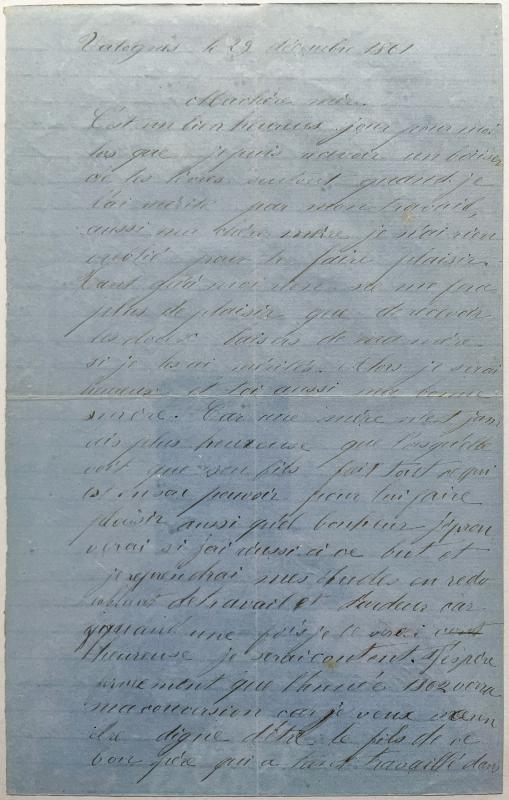 Valognes le 29 décembre 1861
Ma chère mère.
C'est un bien heureux jour pour moi
que je puis avoir un baiser
de tes lèvres surtout quand je
l'ai mérité par mon travail,
aussi ma chère mère je n'ai rien
oublié pour te faire plaisir.
Tant qu'à moi rien ne me fera
plus de plaisir que de recevoir
les doux baisers de ma mère
si je les ai mérités. Alors je serai
heureux et toi aussi ma bonne
mère. Car une mère n'est jam
ais plus heureuse que lorsqu'elle
voit que son fils fait tout ce qui
est en son pouvoir pour lui faire
plaisir aussi quel bonheur j'éprou
verai si j'ai réussi à ce but et
je reprendrai mes études en redo
ublant de travail et d'ardeur car
quand une fois je te verai
heureuse je serai content. J'espère
fermement que l'année 1862 verra
ma conversion car je veux
digne d'être le fils de ce
bon père qui a tant travaillé dans